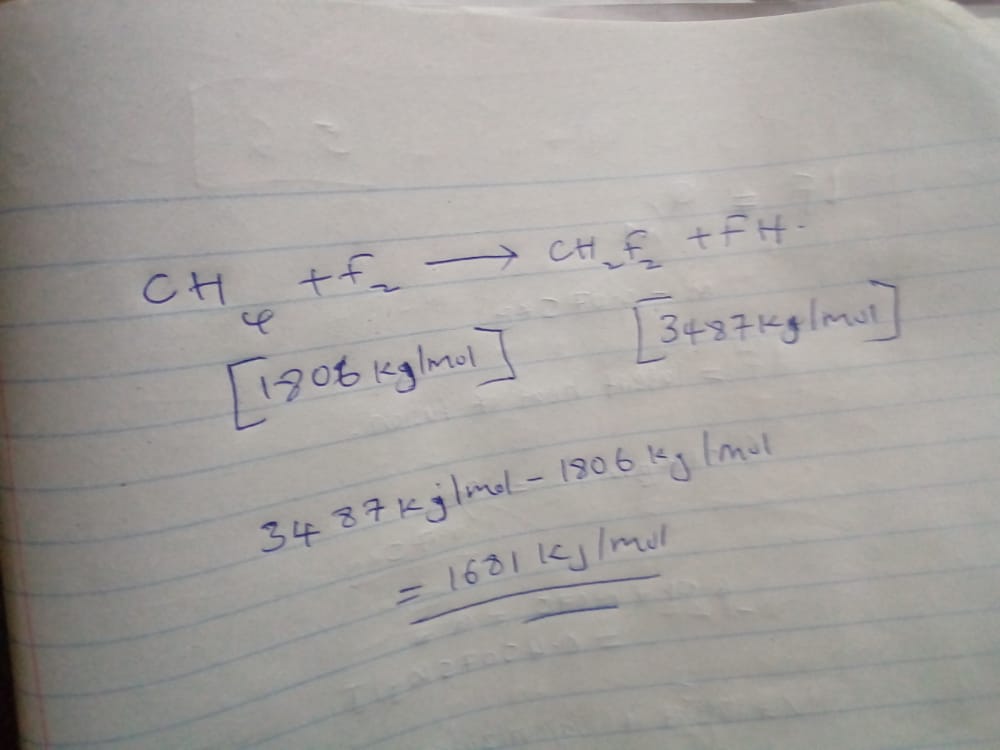 CH₄ + F₂ → CH₂F₂ + FH.
[1806 kg/mol] [3487 kg/mol]
3487 kj/mol - 1806 kg/mol
= 1681 kj/mol